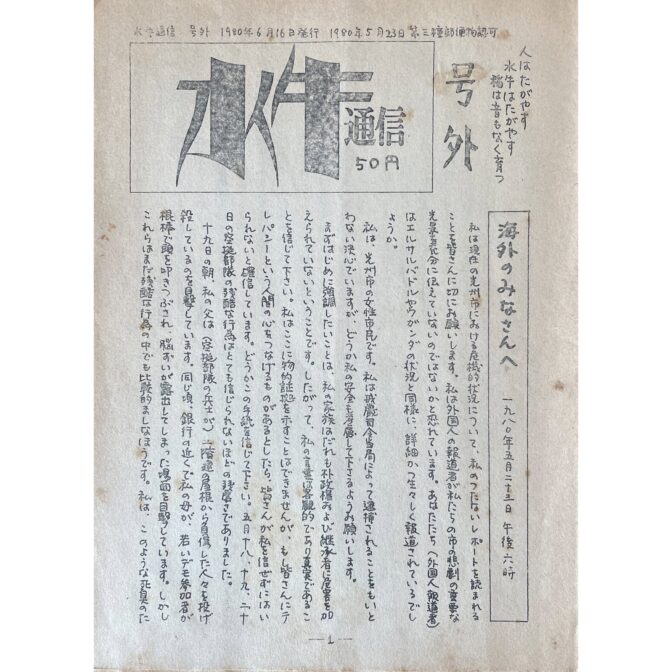 水牛通信 号外 1980年6月16日発行 1980年5月23日第三種郵便物認可
水牛通信
50円
号外
人はたがやす
水牛はたがやす
稲は音もなく育つ
海外のみなさんへ 一九八〇年五月二十三日 午後六時
私は現在の光州市における危機的状況について、私のつたないレポートを読まれる
ことを皆さんに切にお願いします。私は外国人の報道者が私たちの市の悲劇の重要な
光景を充分に伝えていないのではないかと恐れています。あなたたち(外国人報道者)
はエルサルバドルやウガンダの状況と同様に、詳細かつ生々しく報道されているでし
ょうか。
私は、光州市の女性市民です。私は戒厳司令当局によって逮捕されることをもいと
わない決心でいますが、どうか私の安全も考慮して下さるようお願いします。
まずはじめに強調したいことは、私の家族はだれも朴政権および継承者に危害を加
えられていないということです。したがって、私の言葉は客観的であり真実であるこ
とを信じて下さい。私はここに物的証拠を示すことはできませんが、もし皆さんにテ
レパシーという人間の心をつなげるものがあるとしたら、皆さんが私を信ぜずにはい
られないと確信しています。どうかこの手紙を信じて下さい。五月十八、十九、二十
日の空挺部隊の残酷な行為はとても信じられないほどの残虐さでありました。
十九日の朝、私の父は(空挺部隊の兵士が)二階建の屋根から負傷した人々を投げ
殺しているのを目撃しています。同じ頃、銀行の近くで私の母が、若いデモ参加者が
棍棒で頭を叩きつぶされ、脳ずいが露出してしまった場面を目撃しています。しかし
これらはまだ残酷な行為の中でも比較的ましなほうです。私は、このような死臭のた
—1—